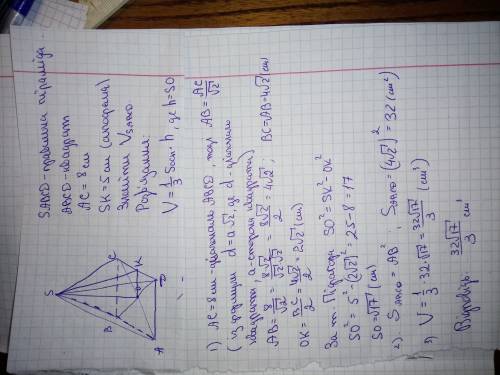 SABCD - правильна піраміда
ABCD - квадрат
AC = 8 см
SK = 5 см (апофема)
Знайти V SABCD
Розв'язання:
V = 1/3 Sосн · h, де h = SO
S
B
C
K
O
A
D
1) AC = 8 см - діагональ ABCD, тоді AB = AC/√2
(із формули d = a√2, де d - діагональ
квадрата, a - сторона квадрата)
AB = 8/√2 = 8√2/√2·√2 = 8√2/2 = 4√2; BC = AB = 4√2 (см)
OK = BC/2 = 4√2/2 = 2√2 (см)
За т. Піфагора SO² = SK² - OK²
SO² = 5² - (2√2)² = 25 - 8 = 17
SO = √17 (см)
2) S ABCD = AB², S ABCD = (4√2)² = 32 (см²)
3) V = 1/3 · 32 · √17 = 32√17/3 (см³)
Відповідь: 32√17/3 см³